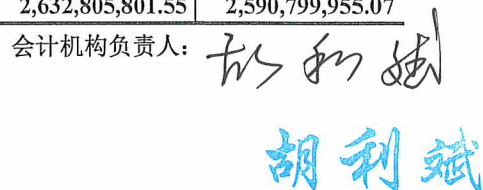 2,632,805,801.55 2,590,799,955.07
会计机构负责人：胡利斌
胡利斌